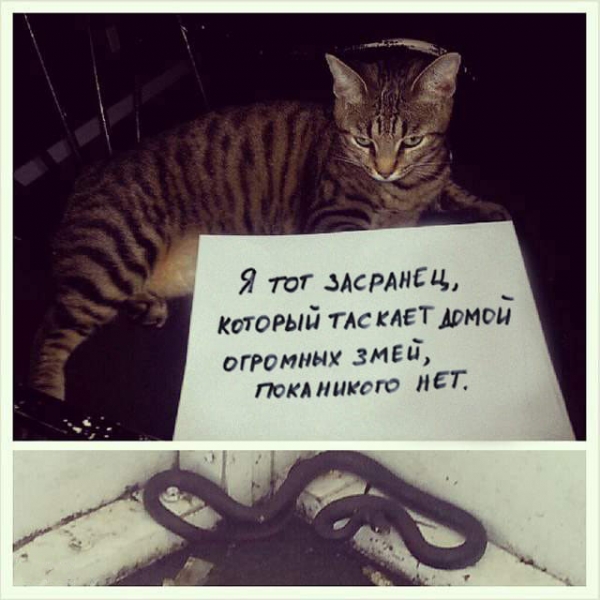 Я ТОТ ЗАСРАНЕЦ,
КОТОРЫЙ ТАСКАЕТ ДОМОЙ
ОГРОМНЫХ ЗМЕЙ,
ПОКА НИКОГО НЕТ.